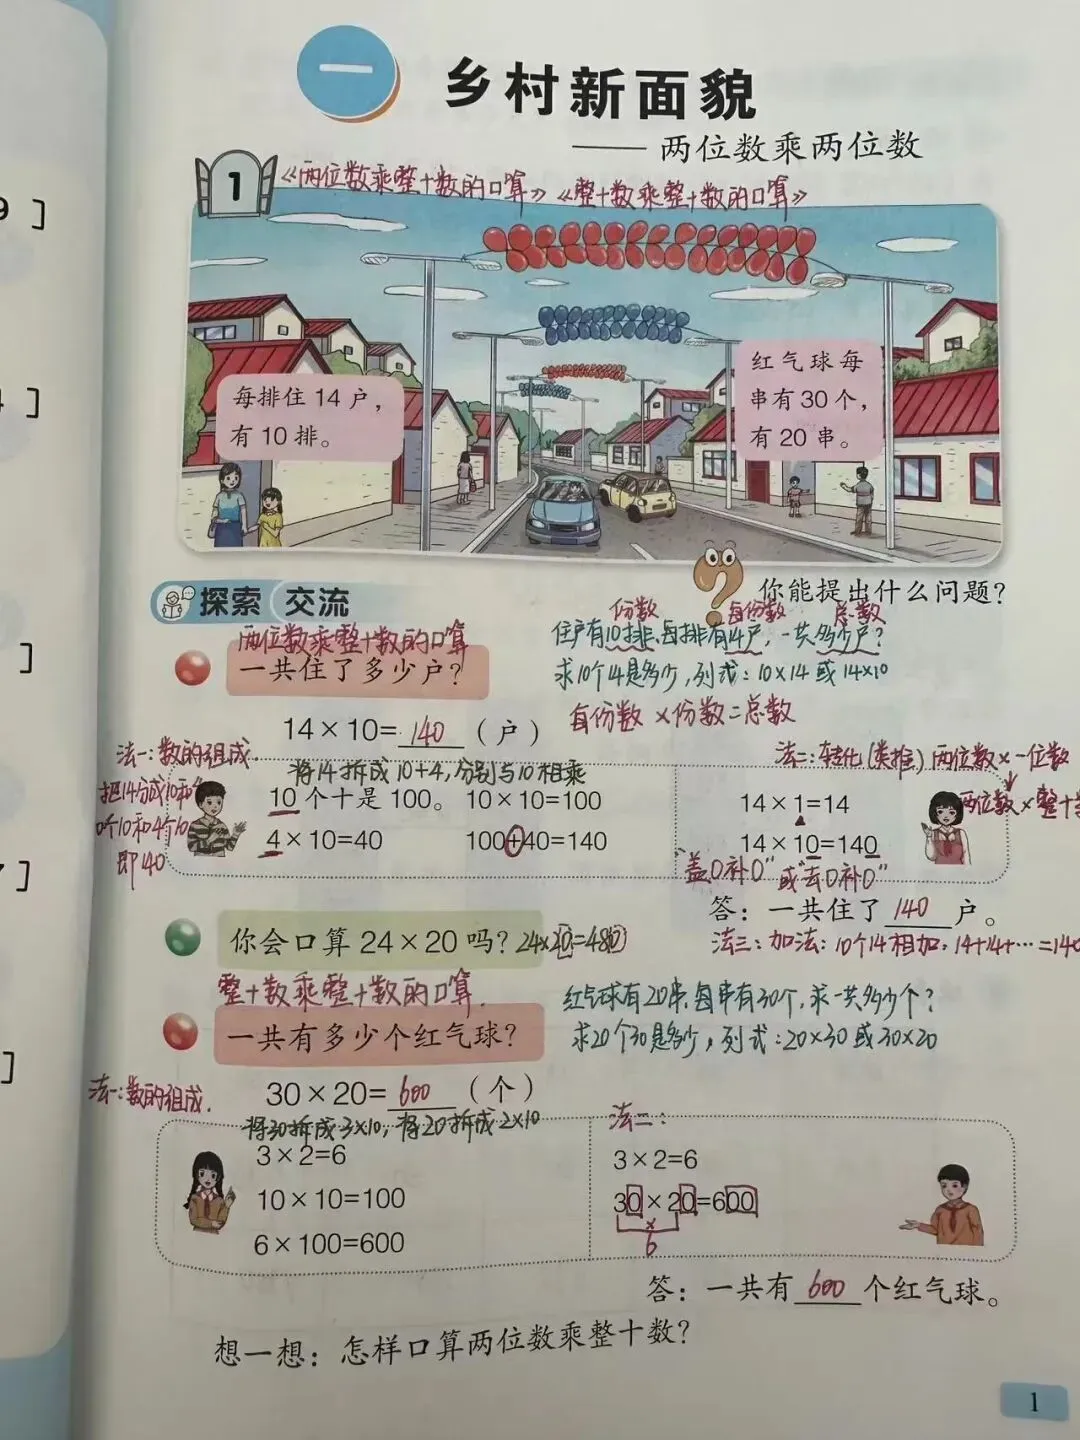 9 ]
]
]
]
]
一
乡村新面貌
—— 两位数乘两位数
1
《两位数乘整十数的口算》《整十数乘整十数的口算》
每排住 14 户，
有 10 排。
红气球每
串有 30 个，
有 20 串。
你能提出什么问题？
探索 交流
份数 每份数 总数
两位数乘整十数的口算
住户有10排，每排有14户，一共多少户？
一共住了多少户？
求10个14是多少，列式：10×14 或 14×10
每份数×份数=总数
14×10=140（户）
法一：数的组成.
将14拆成10+4，分别与10相乘
法二：转化（类推）两位数×一位数
两位数×整十
把14分成10和
10 个十是 100。 10×10=100
4×10=40 100+40=140
0个10和4个10
即140
14×1=14
14×10=140
"盖0补0"或"去0补0"
答：一共住了 140 户。
法三：加法：10个14相加，14+14+…=140
你会口算 24×20 吗？ 24×20=480
整十数乘整十数的口算.
红气球有20串，每串有30个，求一共多少个？
一共有多少个红气球？
求20个30是多少，列式：20×30 或 30×20
30×20=600（个）
法一：数的组成.
将30拆成3×10，将20拆成2×10
3×2=6
10×10=100
6×100=600
法二：
3×2=6
30×20=600
×
6
答：一共有 600 个红气球。
想一想：怎样口算两位数乘整十数？
1